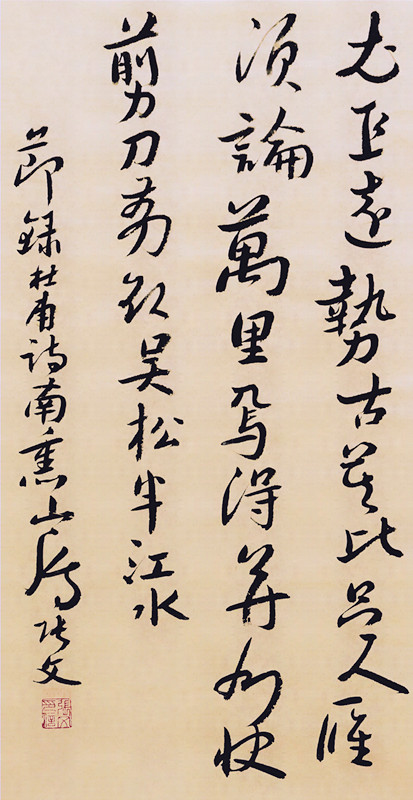 尤工遠勢古莫比咫尺應
須論萬里焉得并州快
剪刀剪取吴松半江水
節録杜甫詩南熏山房张文